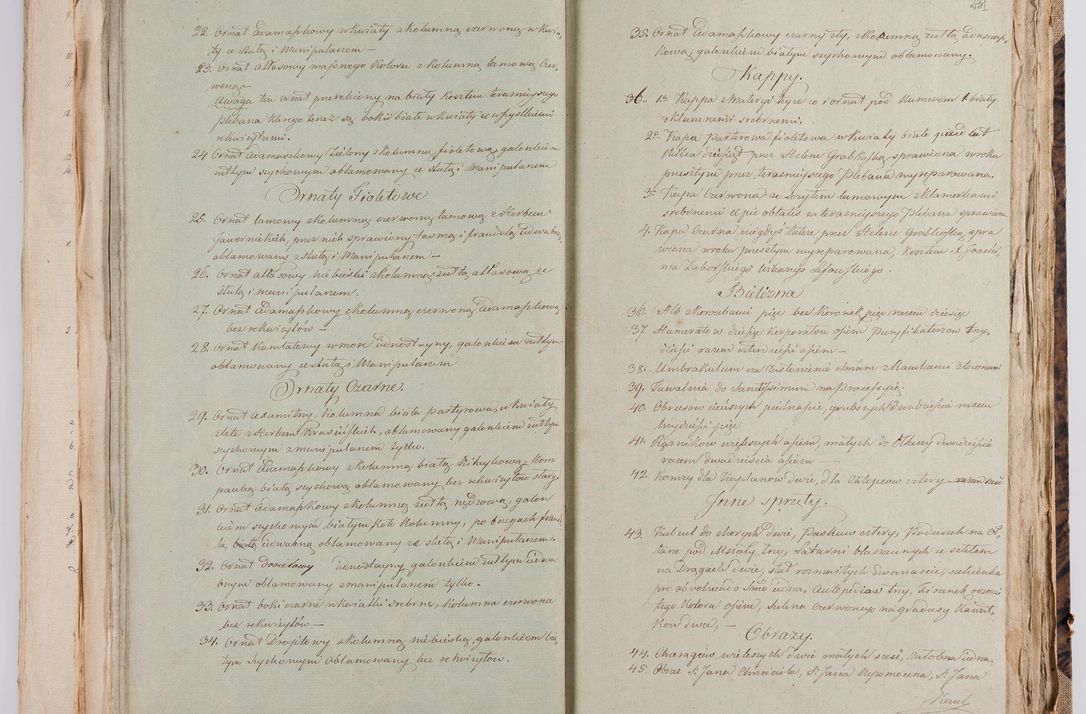 22. Ornat adamaszkowy w kwiaty z kolumną czerwoną w kwia-
ty ze stułą i Manipularzem —
23. Ornat Atłasowy majowego koloru z kolumną lamową czer-
woną
Uwaga ten ornat przerobiony na biały kosztem teraznieyszego
plebana którego teraz są boki białe w kwiaty ze wszystkiemi
rekwizytami.
24 Ornat Adamaszkowy Zielony z kolumną fioletową, galonkiem
żółtym szychowym oblamowany ze stułą i Manipularzem
Ornaty Fioletowe
25. Ornat lamowy z kolumną czerwoną lamową z Herbem
Jawornickich, przez nich sprawiony tasmą i frandzlą Jedwabną
oblamowany z stułą i Manipularzem —
26. Ornat atłasowy niebieski z kolumną żółtą atłasową ze
stułą i manipularzem.
27. Ornat Adamaszkowy z kolumną czerwoną Adamaszkową
bez rekwizytów —
28. Ornat kamlotowy w morę Jednostayny, galonkiem żółtym
oblamowany ze stułą i Manipularzem
Ornaty Czarne.
29. Ornat Axamitny, kolumna biała partyrowa, w kwiaty
złote z Herbem Krasińskich, oblamowany galonkiem żółtym
szychowym z manipularzem tylko.
30. Ornat Adamaszkowy z kolumną białą kitaykową kom
paniką białą szychową oblamowany bez rekwizytów stary.
31. Ornat Adamaszkowy z kolumną żółtą, galon
kiem szychowym białym koło kolumny, po brzegach frandz
lą białą Jedwabną oblamowany ze stułą i Manipularzem.
32. Ornat Jednostayny galonkiem żółtym Jedwa
bnym oblamowany z manipularzem tylko.
33. Ornat boki czarne w kwiatki srebrne, kolumna czerwona
bez rekwizytów —
34. Ornat Drojetowy z kolumną niebieską, galonkiem bia
łym Szychowym oblamowany bez rekwizytów.
35. Ornat Adamaszkowy czarny z kolumną żółtą adamasz
kową galonkiem białym szychowym oblamowany.
Kappy.
36. 1a Kappa z Materyi teyże co i ornat pod Numerem 1. biały
z klamrami srebrnemi.
2a Kapa Parterowa fioletowa w kwiaty białe przed lat
kilka dziesiąt przez Helenę Grabloską sprawiona w roku
przeszłym przez teraznieyszego Plebana wyreparowana.
3a Kapa Czerwona ze szczytem lamowym z klamerkami
srebrnemi ex piis oblatis za teraznieyszego Plebana sprawiona
4. Kapa Czarna niegdyś także przez Helenę Grabloską spra
wiona w roku przeszłym wyreparowana, kosztem X. Joachi
ma Zaborskiego
Bielizna
36. Alb z koronkami pięć bez koronek pięć razem dziesięć
37. Humerałów dziesięć korporałów ośm Puryfikaterzów trzy
dzieści razem czterdzieści ośm —
38. Umbrakulum na
39. Tuwalnia do Santissimum na Processyią.
40. Obrusów cieńszych piętnaście, grubszych dwadzieścia razem
trzydzieści pięć
41. Ręczników większych ośm, małych do Ołtarzy dwadzieścia
razem dwadzieścia ośm —
42. Komży dla Kapłanów dwie, dla chłopców cztery — razem sześć
Inne sprzęty.
43. Kubek do chorych dwie, Pasków cztery, Poduszek na Oł-
tarze pod Mszały trzy, Latarni blaszanych ze szkłem
na Drągach dwie, Stuł rozmaitych dwanaście, sukienka
Antepedia trzy, Firanek rozmai
tego koloru ośm, sukna czerwonego na gradusy kawał
ków dwa. —
Obrazy.
44. Chorągiew większych dwie małych sześć, żałobna iedna.
45. Obraz S. Jana Chrzciciela, S. Jana Nepomucena, S. Jana